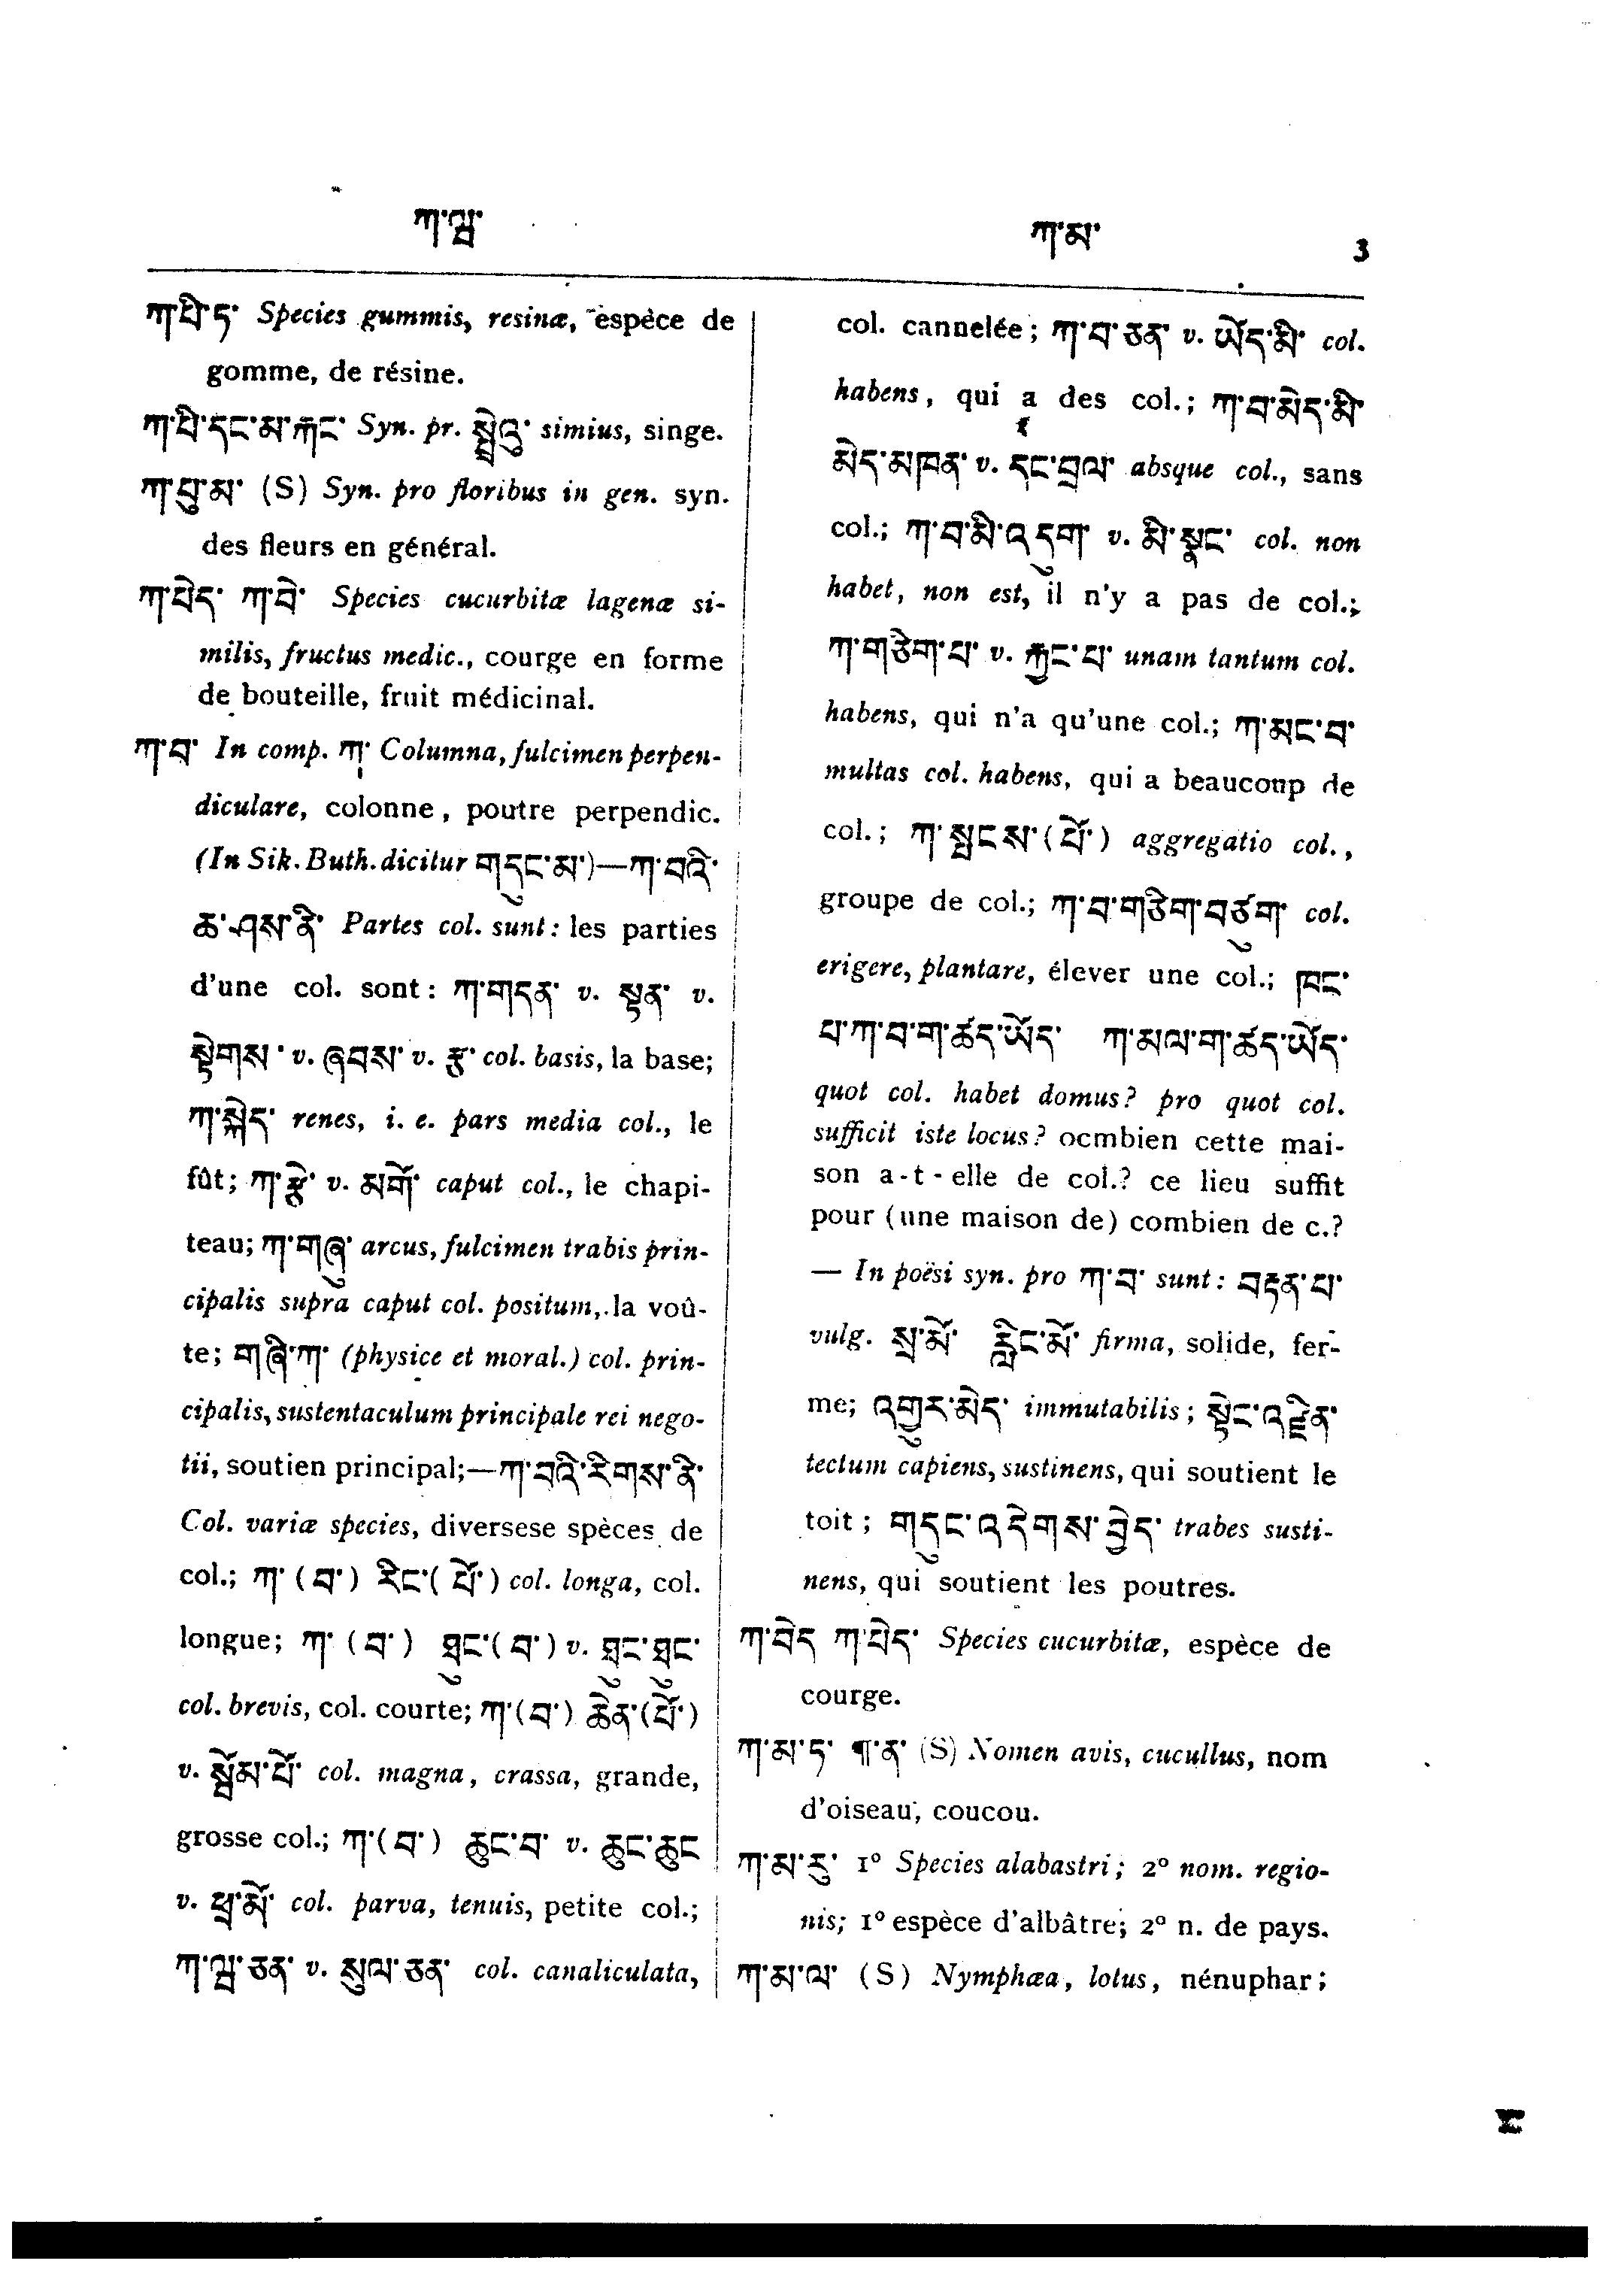 ཀ་ལྦ་ ཀ་མ་ 3
ཀ་པི་ཏ་ Species gummis, resinæ, espèce de
gomme, de résine.
ཀ་པི་དང་མ་རྐང་ Syn. pr. སྤྲེའུ་ simius, singe.
ཀ་བུ་མ་ (S) Syn. pro floribus in gen. syn.
des fleurs en général.
ཀ་པེད་ ཀ་བེ་ Species cucurbitæ lagenæ si-
milis, fructus medic., courge en forme
de bouteille, fruit médicinal.
ཀ་བ་ In comp. ཀ་ Columna, fulcimen perpen-
diculare, colonne, poutre perpendic.
(In Sik. Buth. dicitur གདུང་མ་)—ཀ་བའི་
ཆ་ཤས་ནི་ Partes col. sunt: les parties
d'une col. sont: ཀ་གདན་ v. སྟན་ v.
སྟེགས་ v. ཞབས་ v. རྩ་ col. basis, la base;
ཀ་སྐེད་ renes, i. e. pars media col., le
fût; ཀ་རྩེ་ v. མགོ་ caput col., le chapi-
teau; ཀ་གཞུ་ arcus, fulcimen trabis prin-
cipalis supra caput col. positum, la voû-
te; གཞི་ཀ་ (physice et moral.) col. prin-
cipalis, sustentaculum principale rei nego-
tii, soutien principal;—ཀ་བའི་རིགས་ནི་
Col. variæ species, diversese spèces de
col.; ཀ་ (བ་) རིང་(པོ་) col. longa, col.
longue; ཀ་ (བ་) ཐུང་(བ་) v. ཐུང་ཐུང་
col. brevis, col. courte; ཀ་(བ་) ཆེན་(པོ་)
v. སྦོམ་པོ་ col. magna, crassa, grande,
grosse col.; ཀ་(བ་) ཆུང་བ་ v. ཆུང་ཆུང
v. ཕྲ་མོ་ col. parva, tenuis, petite col.;
ཀ་ལྦ་ཅན་ v. སུལ་ཅན་ col. canaliculata,
col. cannelée; ཀ་བ་ཅན་ v. ཡོད་མི་ col.
habens, qui a des col.; ཀ་བ་མེད་མི་
མེད་མཁན་ v. དང་བྲལ་ absque col., sans
col.; ཀ་བ་མི་འདུག་ v. མི་སྣང་ col. non
habet, non est, il n'y a pas de col.;
ཀ་གཅིག་པ་ v. རྐྱང་པ་ unam tantum col.
habens, qui n'a qu'une col.; ཀ་མང་བ་
multas col. habens, qui a beaucoup de
col.; ཀ་སྤུངས་(པོ་) aggregatio col.,
groupe de col.; ཀ་བ་གཅིག་བཙུག་ col.
erigere, plantare, élever une col.; ཁང་
པ་ཀ་བ་ག་ཚད་ཡོད་ ཀ་མལ་ག་ཚད་ཡོད་
quot col. habet domus? pro quot col.
sufficit iste locus? ocmbien cette mai-
son a-t-elle de col.? ce lieu suffit
pour (une maison de) combien de c.?
— In poësi syn. pro ཀ་བ་ sunt: བརྟན་པ་
vulg. སྲ་མོ་ རླིང་མོ་ firma, solide, fer-
me; འགྱུར་མེད་ immutabilis; སྟེང་འཛིན་
tectum capiens, sustinens, qui soutient le
toit; གདུང་འདེགས་བྱེད་ trabes susti-
nens, qui soutient les poutres.
ཀ་བེད ཀ་པེད་ Species cucurbitæ, espèce de
courge.
ཀ་མ་ཏ་ ཀ་ན་ (S) Nomen avis, cucullus, nom
d'oiseau, coucou.
ཀ་མ་རུ་ 1º Species alabastri; 2º nom. regio-
nis; 1º espèce d'albâtre; 2º n. de pays.
ཀ་མ་ལ་ (S) Nymphæa, lotus, nénuphar;